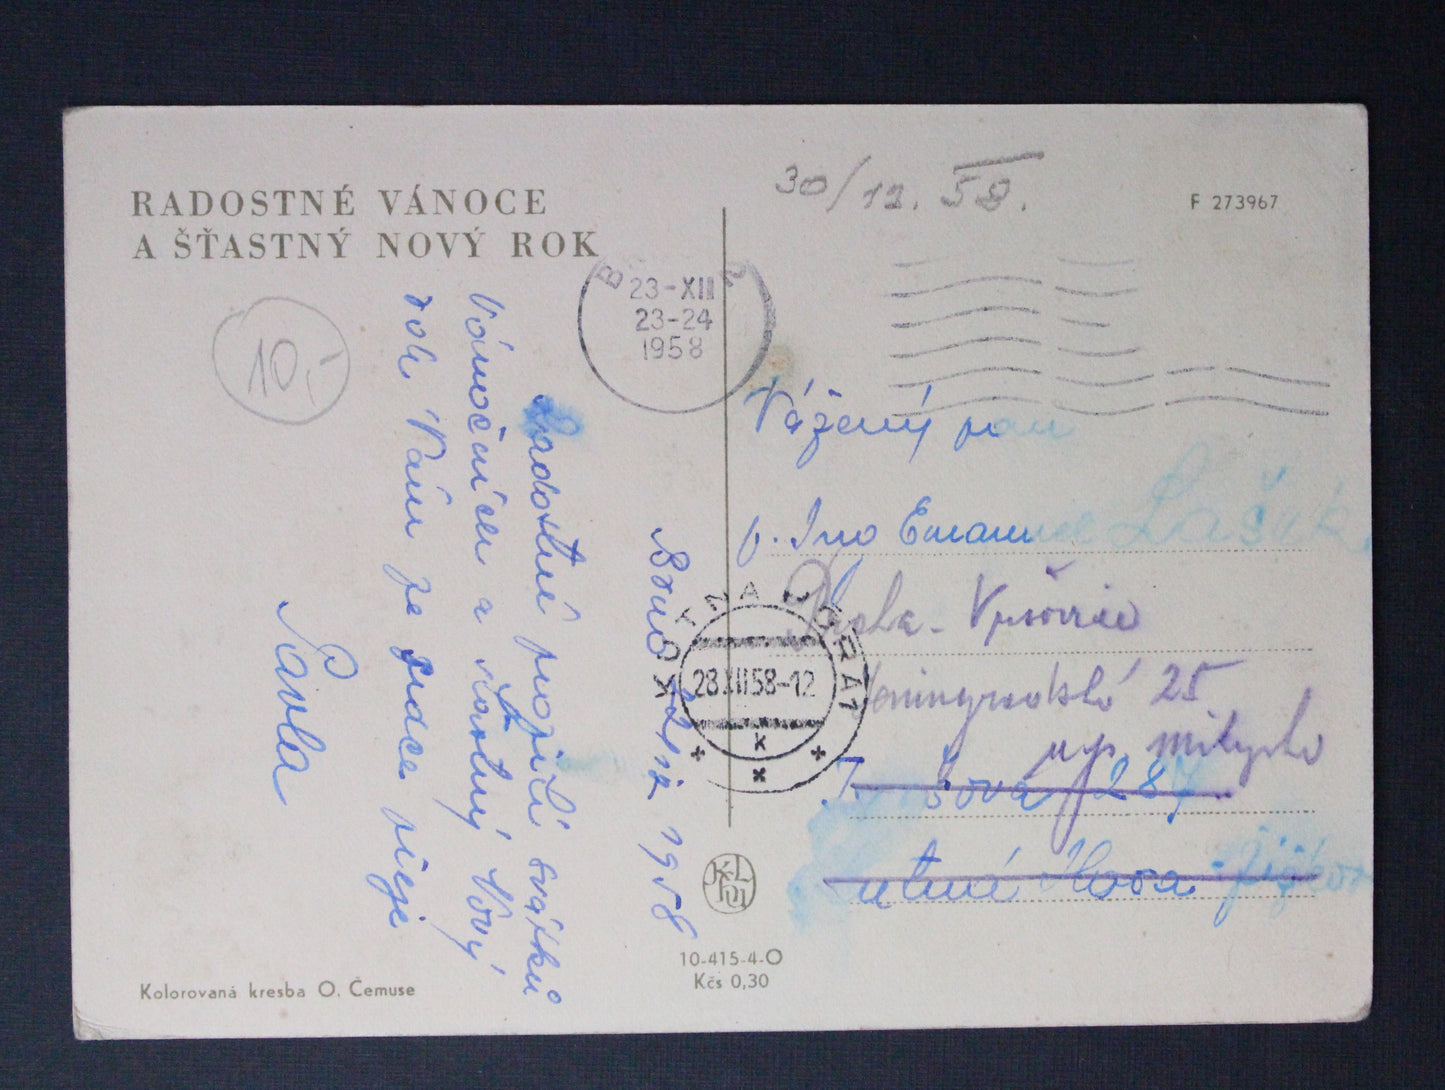 RADOSTNÉ VÁNOCE
A ŠŤASTNÝ NOVÝ ROK
10,-
Radostné prožití svátků
Vánočních a šťastný Nový
rok Vám ze srdce přeje
Pavla
Brno 22. 12. 1958
Kolorovaná kresba O. Čemuse
30/12. 58.
F 273967
23-XII
23-24
1958
Vážený pan
p. Ing Emanuel Lašek
Praha - Vršovice
Leningradská 25
28.XII.58-12
k
287
Kutná Hora - Žižkov
10-415-4-O
Kčs 0,30